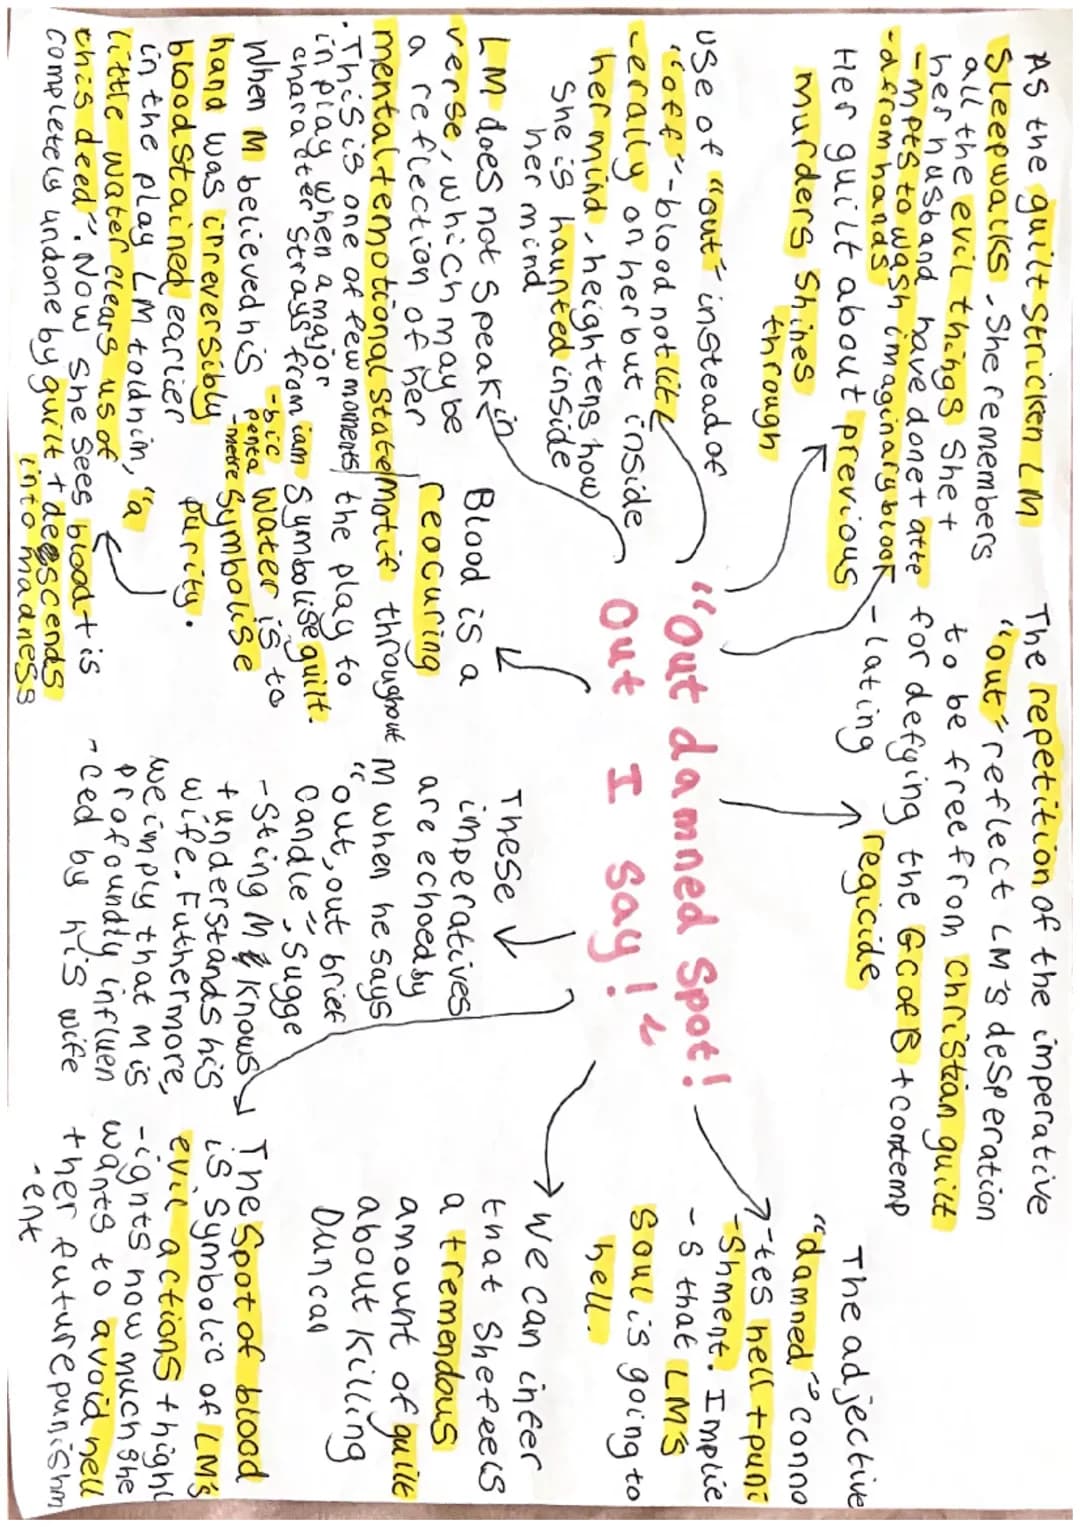 As the guilt stricken LM
sleepwalks, she remembers
all the evil things she +
her husband have done + atte
-mpts to wash imaginary blood
-d from hands
Her guilt about previous
murders shines
through
The repetition of the imperative
"out" reflect LM's desperation
to be free from Christian guilt
for defying the GCOEB + contemp
-lating
regicide
The adjective
"damned" conno
-tes hell + puni
-shment. Implie
-s that LM's
soul is going to
hell.
use of "out" instead of
"off" - blood not lite
-erally on her but inside
her mind, heightens how
she is haunted inside
her mind
"Out damned spot!
out I say!"
LM does not speak in
verse, which maybe
a reflection of her
mental + emotional state
. This is one of few moments
in play when a major
character strays from iam
-bic
penta
-metre
Blood is a
reocuring
motif throughout
the play to
symbolise guilt.
Water is to
symbolise
purity.
When M believed his
hand was irreversibly
bloodstained earlier
in the play LM told him, "a
little water clears us of
this deed". Now she sees blood + is
completely undone by guilt + deescends
into madness
These
imperatives
are echoed by
M when he says
"out, out brief
candle", sugge
-sting M knows
+ understands his
wife. Futhermore,
we imply that M is
profoundly influen
-ced by his wife
we can infer
that she feels
a tremendous
amount of guilt
about killing
Duncan
The spot of blood
is symbolic of LM's
evil actions + highl
-ights how much she
wants to avoid hell
+ her future punishm
-ent